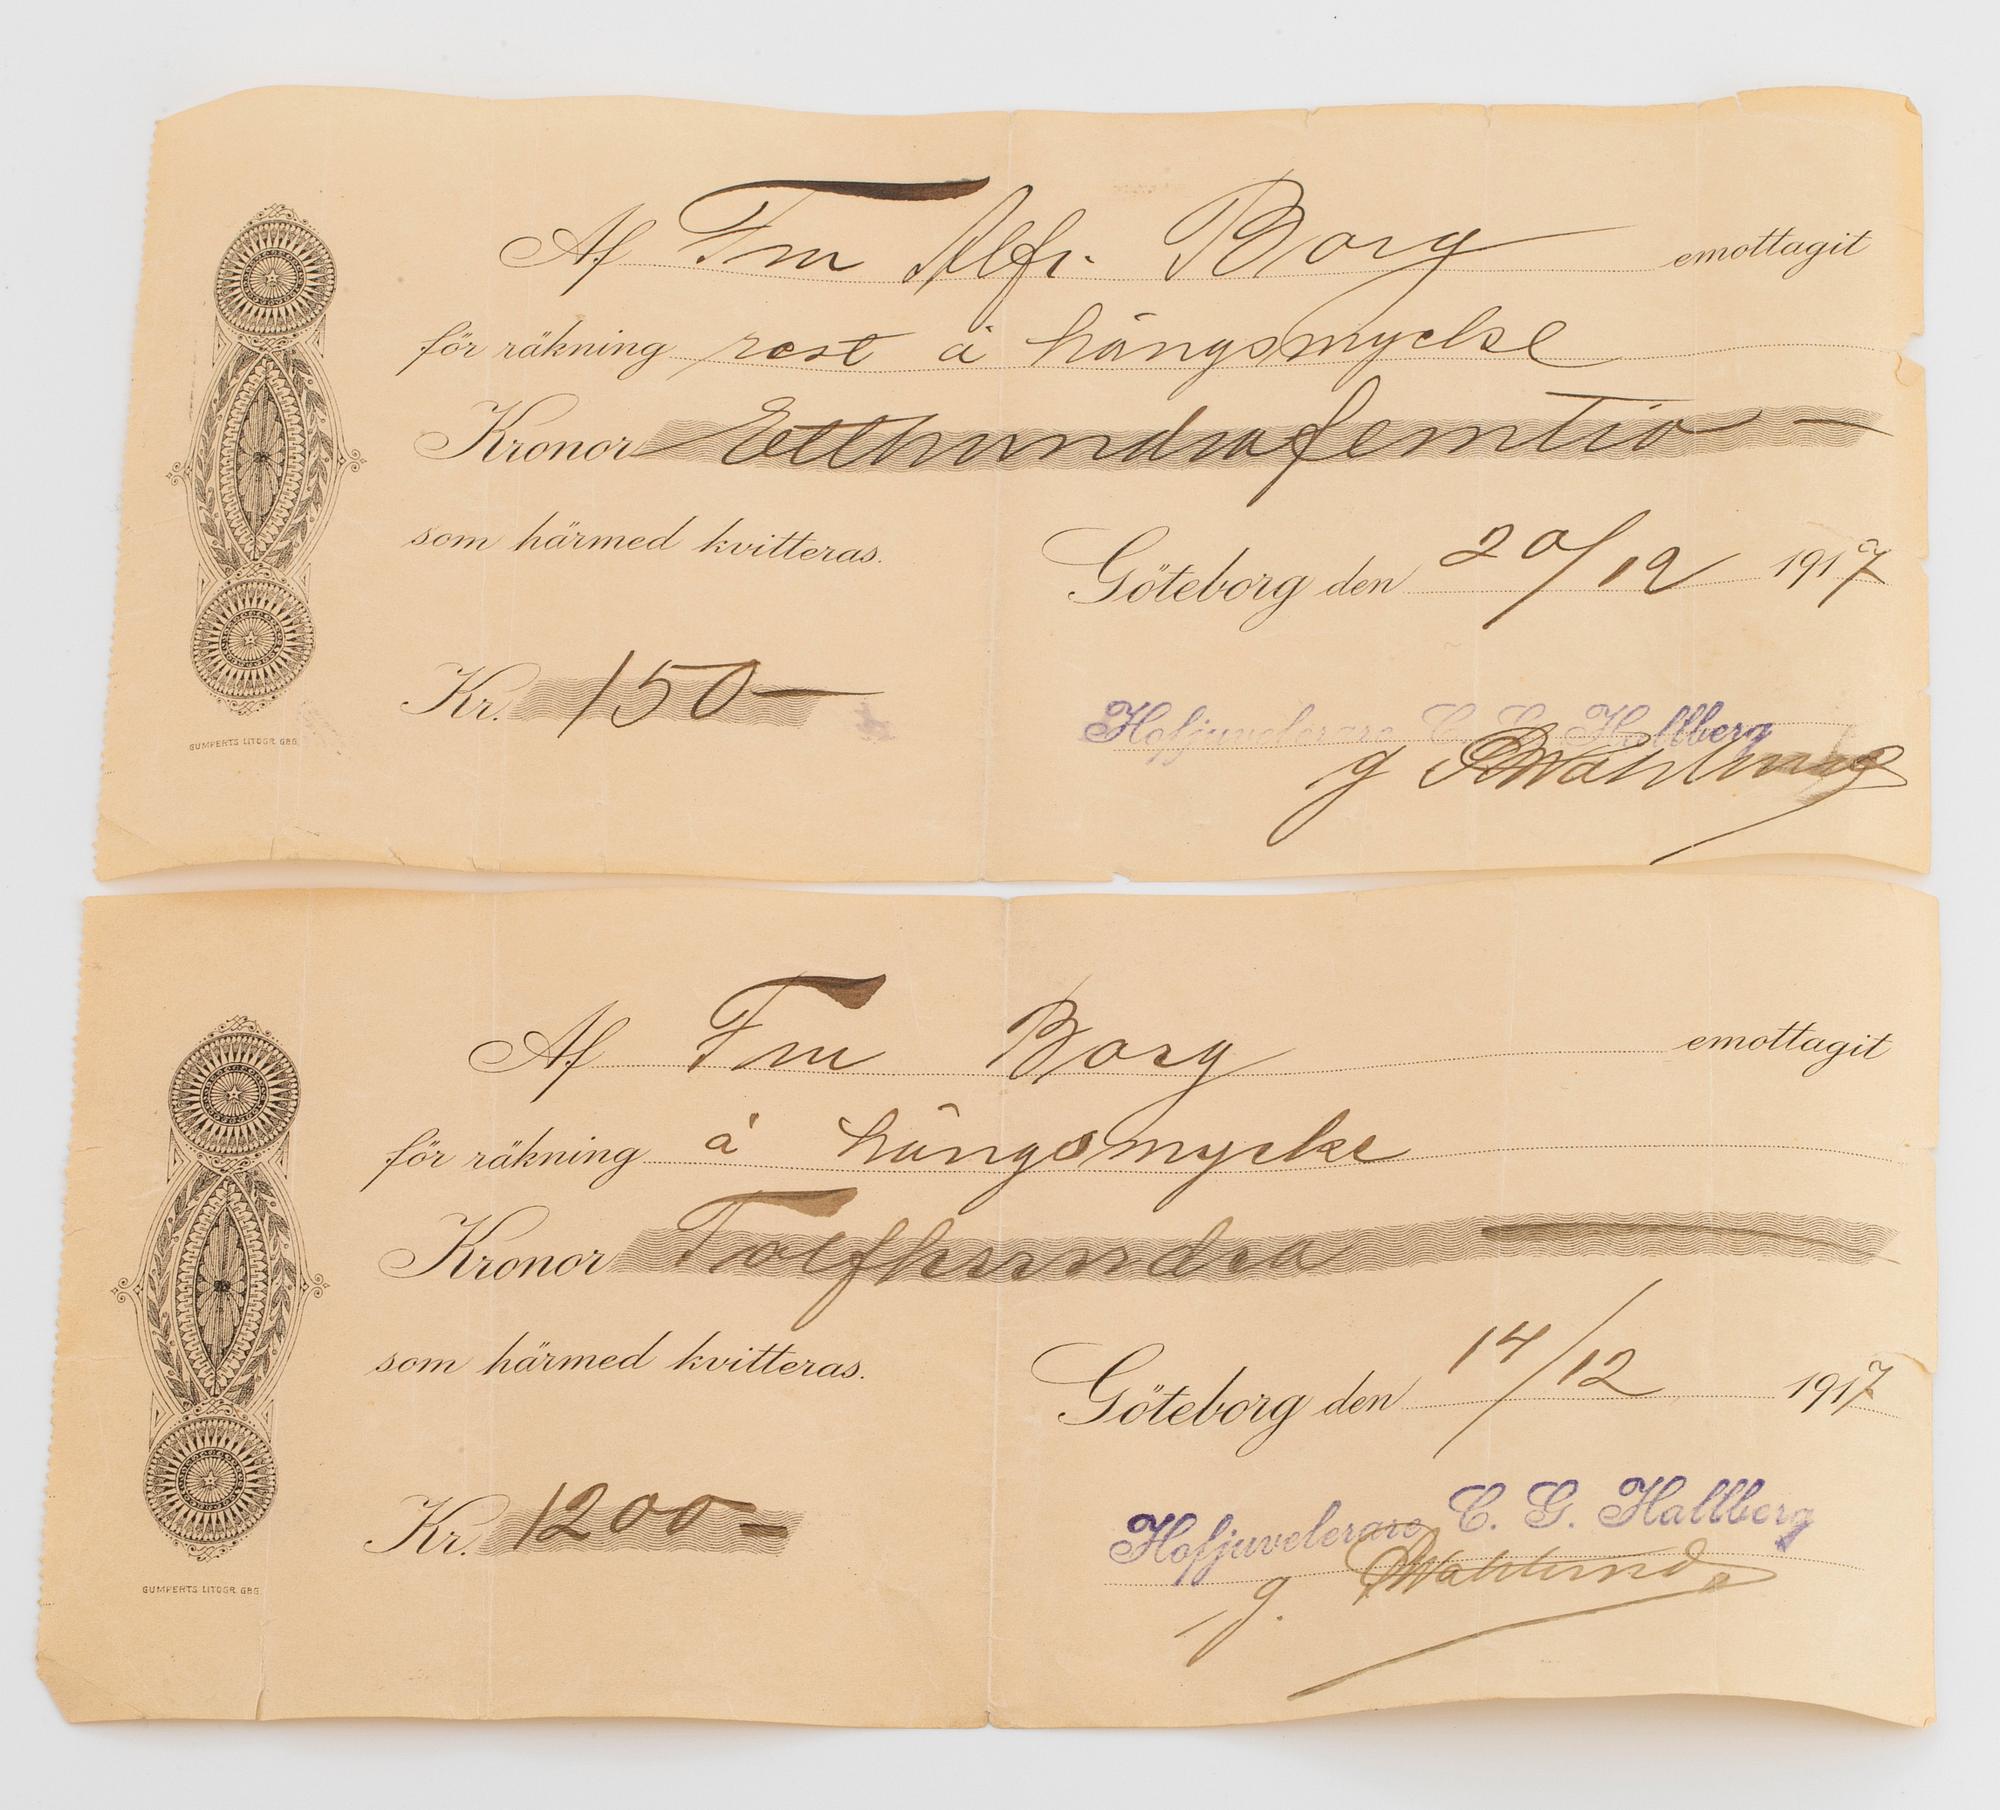 Af Fru Alfr. Borg emottagit
för räkning rest å hängsmycke
Kronor Etthundrafemtio —
som härmed kvitteras.
Göteborg den 20/12 1917
Kr. 150 —
Hofjuvelerare C. G. Hallberg
g
GUMPERTS LITOGR. GBG.
Af Fru Borg emottagit
för räkning å hängsmycke
Kronor Tolfhundra —
som härmed kvitteras.
Göteborg den 14/12 1917
Kr. 1200 —
Hofjuvelerare C. G. Hallberg
g.
GUMPERTS LITOGR. GBG.